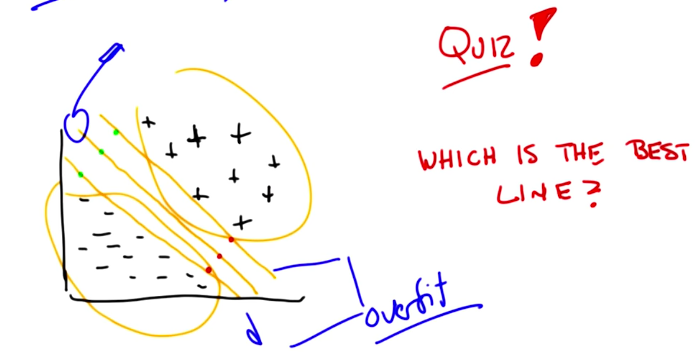 QUIZ!
WHICH IS THE BEST
LINE?
overfit